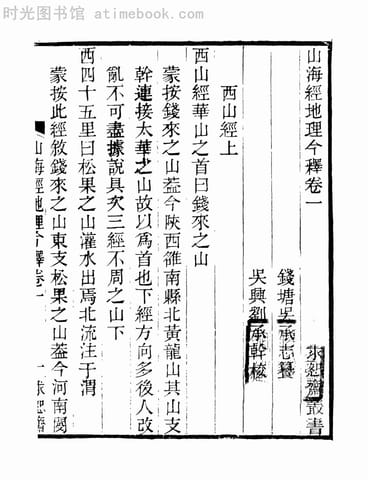 时光图书馆 www.atimebook.com
山海經地理今釋卷一
求恕齋叢書
錢塘吳承志纂
吳興劉承幹校
西山經上
西山經華山之首曰錢來之山
蒙按錢來之山葢今陝西雒南縣北黃龍山其山支
幹連接太華之山故以爲首也下經方向多後人改
亂不可盡據說具次三經不周之山下
西四十五里曰松果之山灌水出焉北流注于渭
蒙按此經敘錢來之山東支松果之山葢今河南閿
山海經地理今釋卷一
一
求恕齋